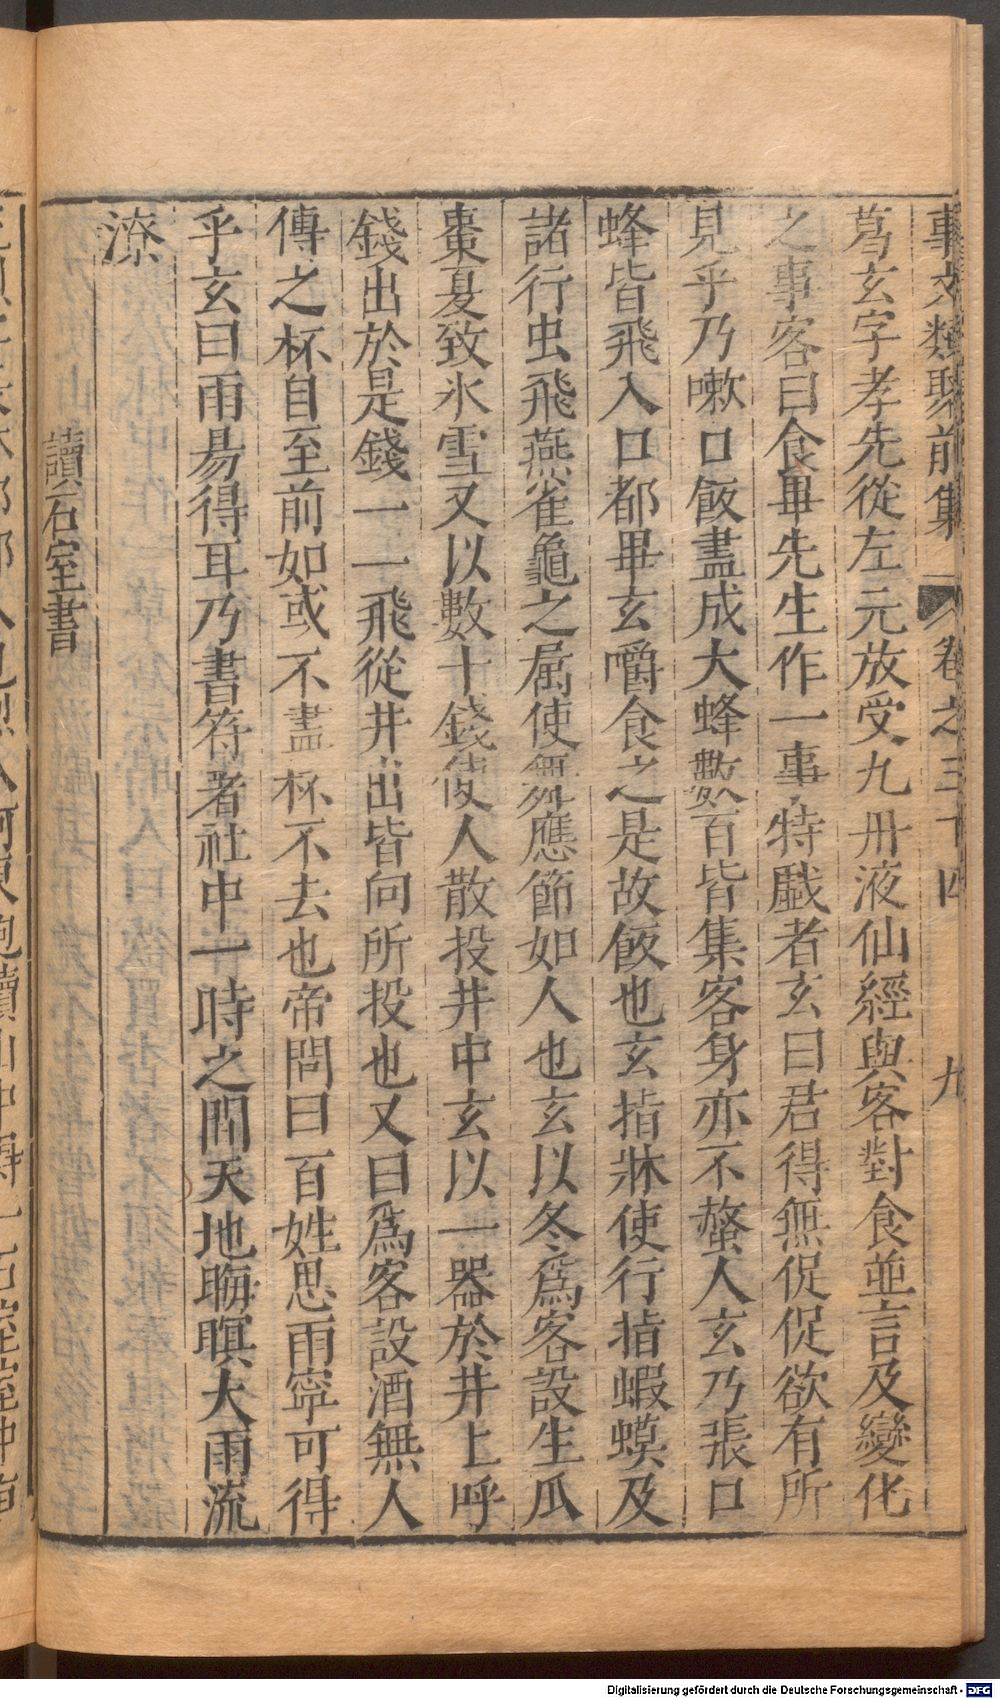 事文類聚前集 卷之三十四 九
葛玄字孝先從左元放受九丹液仙經與客對食並言及變化
之事客曰食畢先生作一事特戲者玄曰君得無促促欲有所
見乎乃嗽口飯盡成大蜂數百皆集客身亦不螫人玄乃張口
蜂皆飛入口都畢玄嚼食之是故飯也玄指牀使行指蝦蟆及
諸行虫飛燕雀龜之属使舞應節如人也玄以冬爲客設生瓜
棗夏致氷雪又以數十錢使人散投井中玄以一器於井上呼
錢出於是錢一一飛從井出皆向所投也又曰爲客設酒無人
傳之杯自至前如或不盡杯不去也帝問曰百姓思雨寧可得
乎玄曰雨昜得耳乃書符著社中一時之間天地晦暝大雨流
潦
讀石室書
Digitalisierung gefördert durch die Deutsche Forschungsgemeinschaft - DFG